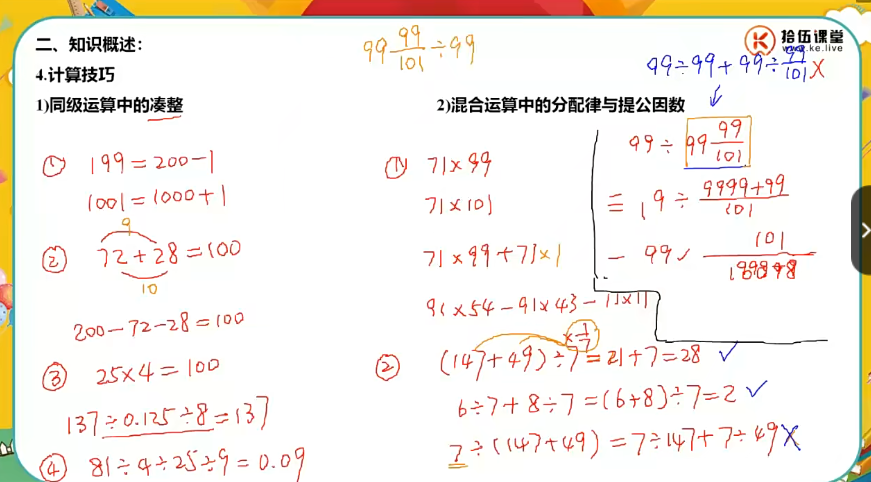 二、知识概述：
4.计算技巧
1)同级运算中的凑整
① 199=200-1
1001=1000+1
9
② 72+28=100
10
200-72-28=100
③ 25×4=100
137÷0.125÷8=137
④ 81÷4÷25÷9=0.09
99 99/101 ÷99
拾伍课堂
www.ke.live
99÷99+99÷99/101 X
2)混合运算中的分配律与提公因数
① 71×99
71×101
71×99+71×1
91×54-91×43-11×11
99÷ 99 99/101
9÷ 9999+99/101
99 101
×1/7
② (147+49)÷7=21+7=28 ✓
6÷7+8÷7=(6+8)÷7=2 ✓
7÷(147+49)=7÷147+7÷49 X